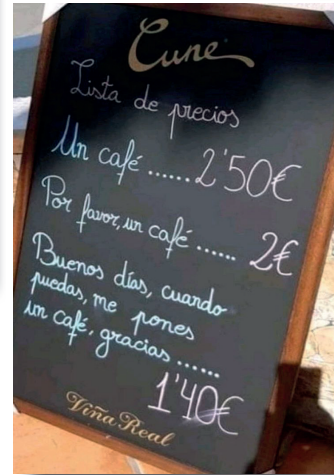 Cune
Lista de precios
Un café ...... 2'50€
Por favor, un café ...... 2€
Buenos días, cuando
puedas, me pones
un café, gracias ......
1'40€
Viña Real